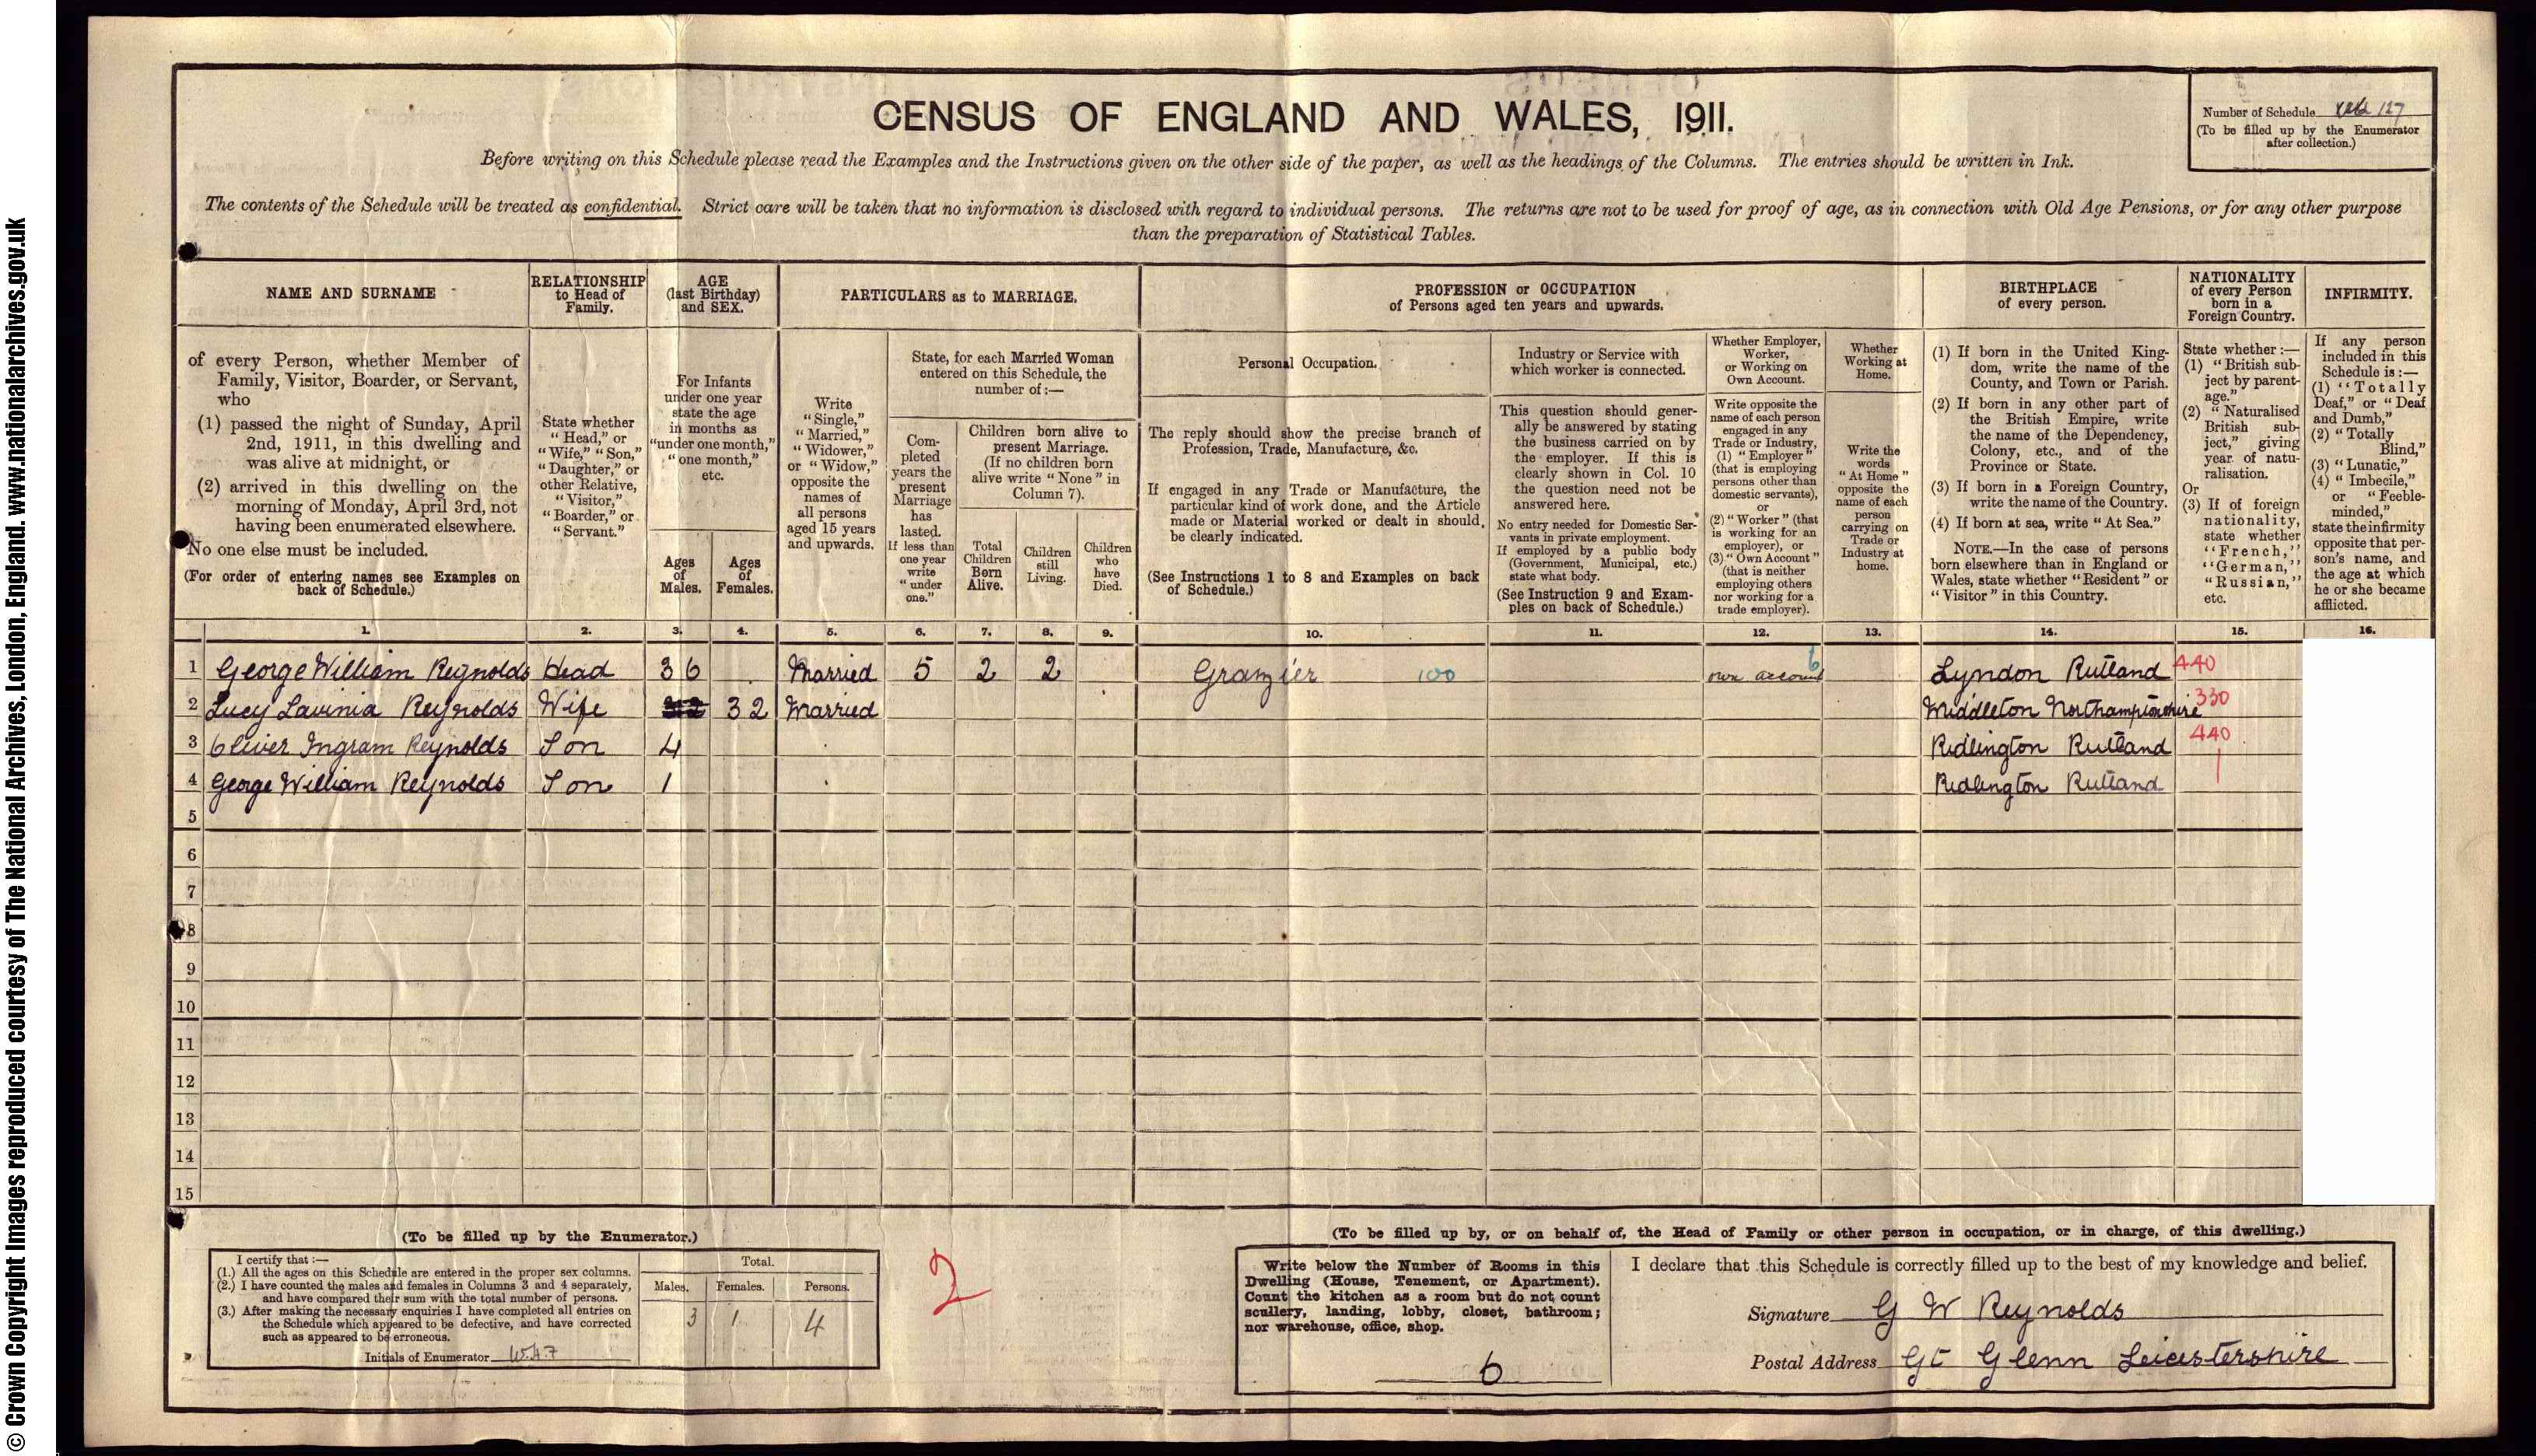 © Crown Copyright Images reproduced courtesy of The National Archives, London, England. www.nationalarchives.gov.uk
CENSUS OF ENGLAND AND WALES, 1911.
Number of Schedule 127
(To be filled up by the Enumerator
after collection.)
Before writing on this Schedule please read the Examples and the Instructions given on the other side of the paper, as well as the headings of the Columns. The entries should be written in Ink.
The contents of the Schedule will be treated as confidential. Strict care will be taken that no information is disclosed with regard to individual persons. The returns are not to be used for proof of age, as in connection with Old Age Pensions, or for any other purpose
than the preparation of Statistical Tables.
NAME AND SURNAME
of every Person, whether Member of
Family, Visitor, Boarder, or Servant,
who
(1) passed the night of Sunday, April
2nd, 1911, in this dwelling and
was alive at midnight, or
(2) arrived in this dwelling on the
morning of Monday, April 3rd, not
having been enumerated elsewhere.
No one else must be included.
(For order of entering names see Examples on
back of Schedule.)
RELATIONSHIP
to Head of
Family.
State whether
"Head," or
"Wife," "Son,"
"Daughter," or
other Relative,
"Visitor,"
"Boarder," or
"Servant."
AGE
(last Birthday)
and SEX.
For Infants
under one year
state the age
in months as
"under one month,"
"one month,"
etc.
Ages
of
Males.
Ages
of
Females.
PARTICULARS as to MARRIAGE.
Write
"Single,"
"Married,"
"Widower,"
or "Widow,"
opposite the
names of
all persons
aged 15 years
and upwards.
State, for each Married Woman
entered on this Schedule, the
number of:—
Com-
pleted
years the
present
Marriage
has
lasted.
If less than
one year
write
"under
one."
Children born alive to
present Marriage.
(If no children born
alive write "None" in
Column 7).
Total
Children
Born
Alive.
Children
still
Living.
Children
who
have
Died.
PROFESSION or OCCUPATION
of Persons aged ten years and upwards.
Personal Occupation.
The reply should show the precise branch of
Profession, Trade, Manufacture, &c.
If engaged in any Trade or Manufacture, the
particular kind of work done, and the Article
made or Material worked or dealt in should
be clearly indicated.
(See Instructions 1 to 8 and Examples on back
of Schedule.)
Industry or Service with
which worker is connected.
This question should gener-
ally be answered by stating
the business carried on by
the employer. If this is
clearly shown in Col. 10
the question need not be
answered here.
No entry needed for Domestic Ser-
vants in private employment.
If employed by a public body
(Government, Municipal, etc.)
state what body.
(See Instruction 9 and Exam-
ples on back of Schedule.)
Whether Employer,
Worker,
or Working on
Own Account.
Write opposite the
name of each person
engaged in any
Trade or Industry,
(1) "Employer"
(that is employing
persons other than
domestic servants),
or
(2) "Worker" (that
is working for an
employer), or
(3) "Own Account"
(that is neither
employing others
nor working for a
trade employer).
Whether
Working at
Home.
Write the
words
"At Home"
opposite the
name of each
person
carrying on
Trade or
Industry at
home.
BIRTHPLACE
of every person.
(1) If born in the United King-
dom, write the name of the
County, and Town or Parish.
(2) If born in any other part of
the British Empire, write
the name of the Dependency,
Colony, etc., and of the
Province or State.
(3) If born in a Foreign Country,
write the name of the Country.
(4) If born at sea, write "At Sea."
NOTE.—In the case of persons
born elsewhere than in England or
Wales, state whether "Resident" or
"Visitor" in this Country.
NATIONALITY
of every Person
born in a
Foreign Country.
State whether:—
(1) "British sub-
ject by parent-
age."
(2) "Naturalised
British sub-
ject," giving
year of natu-
ralisation.
Or
(3) If of foreign
nationality,
state whether
"French,"
"German,"
"Russian,"
etc.
INFIRMITY.
If any person
included in this
Schedule is:—
(1) "Totally
Deaf," or "Deaf
and Dumb,"
(2) "Totally
Blind,"
(3) "Lunatic,"
(4) "Imbecile,"
or "Feeble-
minded,"
state the infirmity
opposite that per-
son's name, and
the age at which
he or she became
afflicted.
1. 2. 3. 4. 5. 6. 7. 8. 9. 10. 11. 12. 13. 14. 15. 16.
1 George William Reynolds Head 36 Married 5 2 2 Grazier 100 own account 6 Lyndon Rutland 440
2 Lucy Lavinia Reynolds Wife 32 Married Middleton Northamptonshire 330
3 Oliver Ingram Reynolds Son 4 Ridlington Rutland 440
4 George William Reynolds Son 1 Ridlington Rutland
5
6
7
8
9
10
11
12
13
14
15
(To be filled up by the Enumerator.)
I certify that:—
(1.) All the ages on this Schedule are entered in the proper sex columns.
(2.) I have counted the males and females in Columns 3 and 4 separately,
and have compared their sum with the total number of persons.
(3.) After making the necessary enquiries I have completed all entries on
the Schedule which appeared to be defective, and have corrected
such as appeared to be erroneous.
Initials of Enumerator
Total.
Males. Females. Persons.
3 1 4
2
(To be filled up by, or on behalf of, the Head of Family or other person in occupation, or in charge, of this dwelling.)
Write below the Number of Rooms in this
Dwelling (House, Tenement, or Apartment).
Count the kitchen as a room but do not count
scullery, landing, lobby, closet, bathroom;
nor warehouse, office, shop.
6
I declare that this Schedule is correctly filled up to the best of my knowledge and belief.
Signature G W Reynolds
Postal Address Gt Glenn Leicestershire